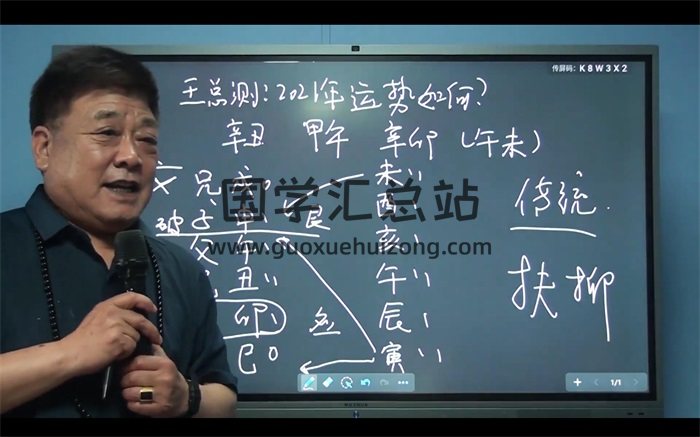 传屏码: K8W3X2
王总测:2021年运势如何?
辛丑 甲午 辛卯 (午未)
兄 戌 未
子 申 酉
父 午 亥
丑 午
卯 辰
巳 寅
传统
扶抑
国学汇总站
www.guoxuehuizong.com
1/1